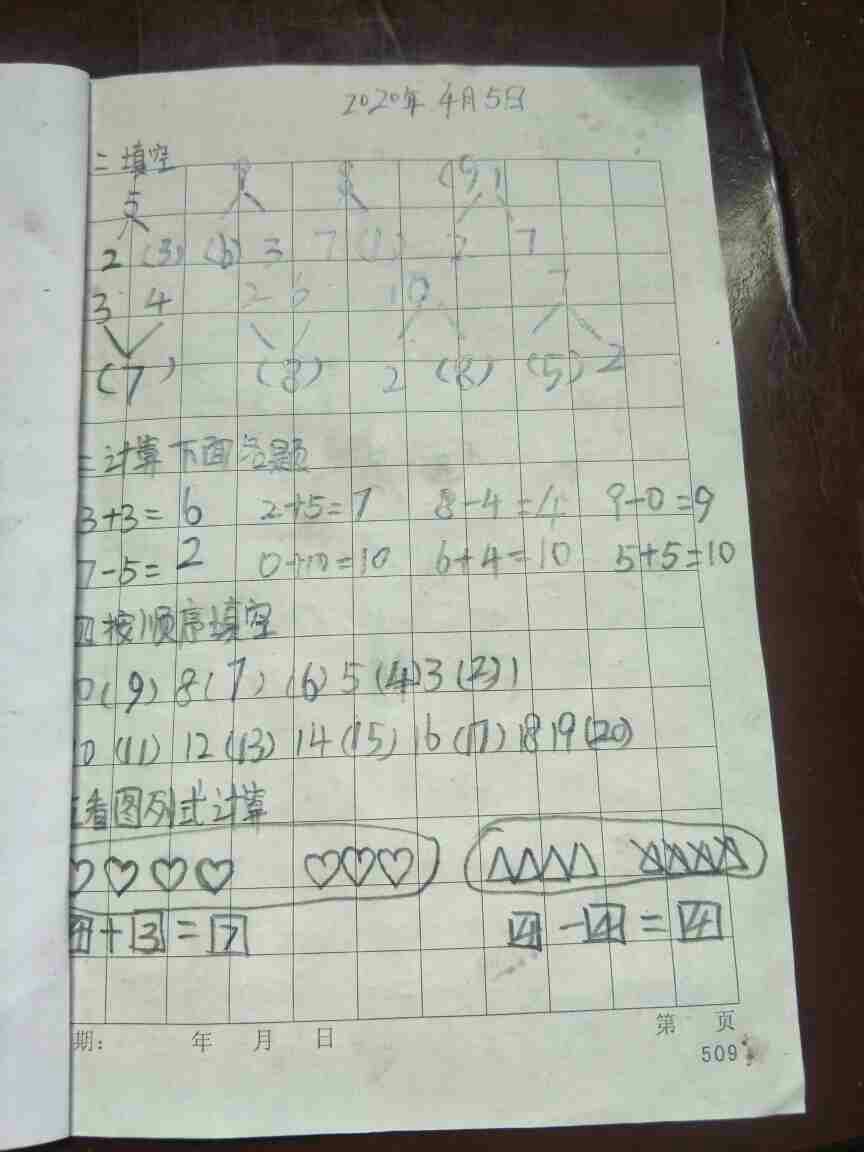 2020年 4月5日
二 填空
5 9 8 (9)
2 (3) (6) 3 7 (1) 2 7
3 4 2 6 10 7
(7) (8) 2 (8) (5) 2
三 计算下面各题
3+3=6 2+5=7 8-4=4 9-0=9
7-5=2 0+10=10 6+4=10 5+5=10
四 按顺序填空
0 (9) 8 (7) (6) 5 (4) 3 (2) 1
10 (11) 12 (13) 14 (15) 16 (17) 18 19 (20)
看图列式计算
4+3=7 4-4=4
期: 年 月 日 第 页
509